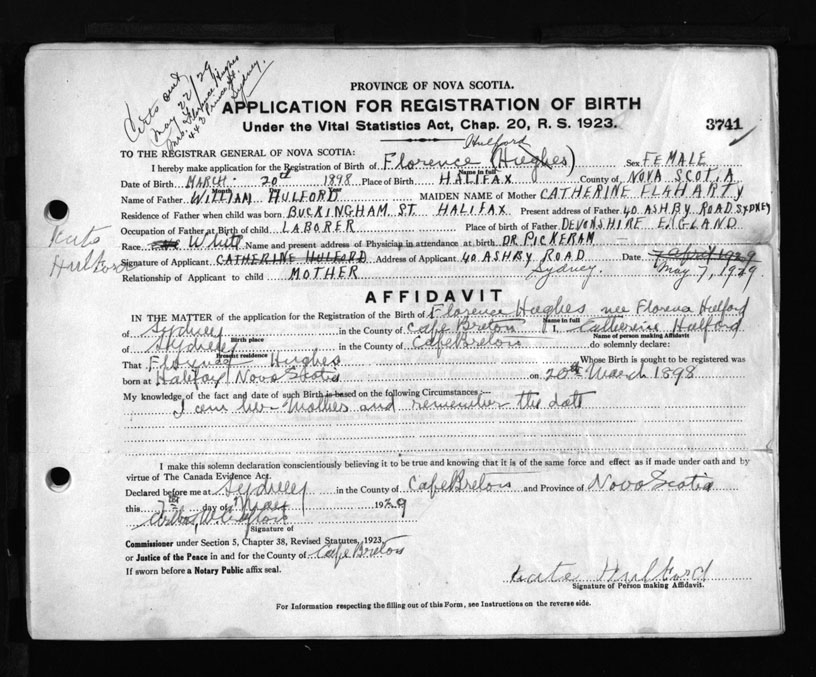 Certs out
May 22/29
Mrs. Florence Hughes
443 Prince St.
Sydney.
PROVINCE OF NOVA SCOTIA.
APPLICATION FOR REGISTRATION OF BIRTH
Under the Vital Statistics Act, Chap. 20, R. S. 1923.
3741
Hulford
TO THE REGISTRAR GENERAL OF NOVA SCOTIA:
I hereby make application for the Registration of Birth of Florence (Hughes) Sex FEMALE
Name in full
Date of Birth MARCH 20th 1898 Place of Birth HALIFAX County of NOVA SCOTIA
Month Day Year
Name of Father WILLIAM HULFORD MAIDEN NAME of Mother CATHERINE FLAHARTY
Residence of Father when child was born BUCKINGHAM ST. HALIFAX Present address of Father 40 ASHBY ROAD SYDNEY
Occupation of Father at Birth of child LABORER Place of birth of Father DEVONSHIRE ENGLAND
Race White Name and present address of Physician in attendance at birth DR. PICKERAM
Kate
Hulford
Signature of Applicant CATHERINE HULFORD Address of Applicant 40 ASHBY ROAD Date 7 April 1929
Sydney. May 7, 1929.
Relationship of Applicant to child MOTHER
AFFIDAVIT
IN THE MATTER of the application for the Registration of the Birth of Florence Hughes nee Florence Hulford
Name in full
of Sydney in the County of Cape Breton I, Catherine Hulford
Birth place Name of person making Affidavit
of Sydney in the County of Cape Breton do solemnly declare:
Present residence
That Florence Hughes Whose Birth is sought to be registered was
born at Halifax Nova Scotia on 20th March 1898
My knowledge of the fact and date of such Birth is based on the following Circumstances
I am her Mother and remember the date
I make this solemn declaration conscientiously believing it to be true and knowing that it is of the same force and effect as if made under oath and by
virtue of The Canada Evidence Act.
Declared before me at Sydney in the County of Cape Breton and Province of Nova Scotia
this 7th day of May 1929
Signature of
Commissioner under Section 5, Chapter 38, Revised Statutes, 1923,
or Justice of the Peace in and for the County of Cape Breton
If sworn before a Notary Public affix seal.
Kate Hulford
Signature of Person making Affidavit.
For Information respecting the filling out of this Form, see Instructions on the reverse side.